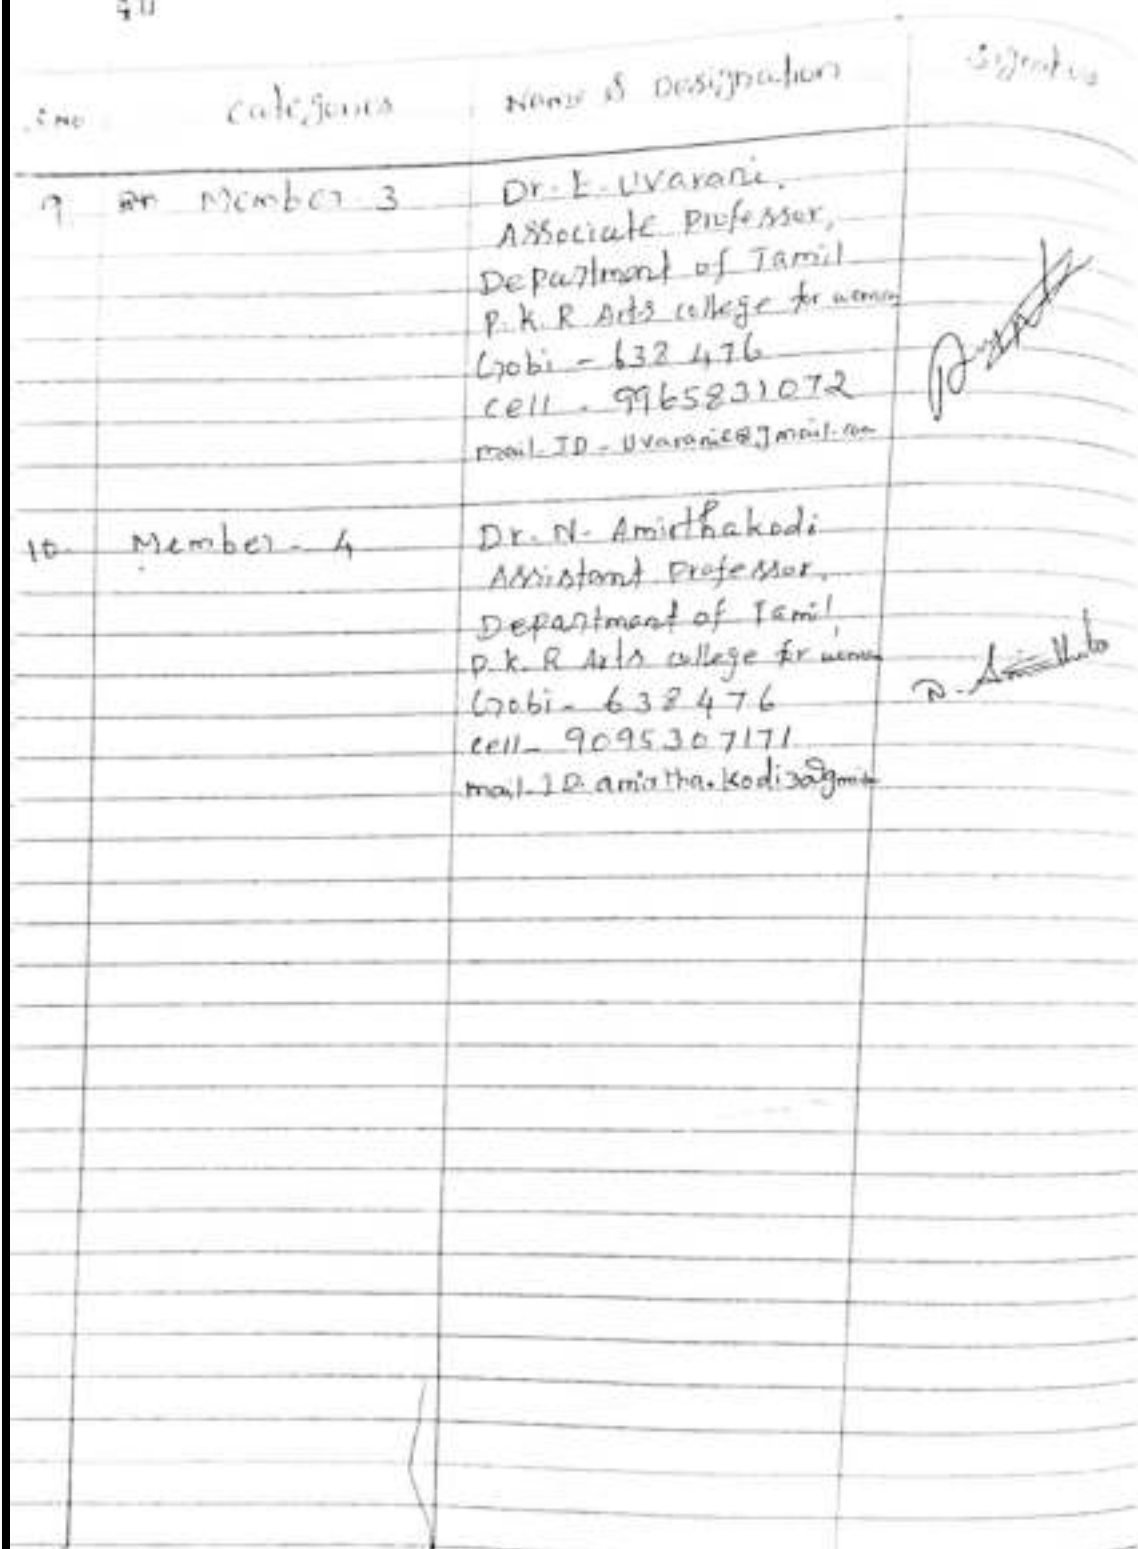 S.No Categories Name & Designation Signature
9. Member-3 Dr. E. Uvarani,
Associate Professor,
Department of Tamil
P.K.R Arts college for women
Gobi - 638 476
Cell - 9965831072
mail-ID - Uvaranie@gmail.com
10. Member-4 Dr. N. Amirthakodi
Assistant Professor,
Department of Tamil
P.K.R Arts college for women
Gobi - 638476
Cell - 9095307171
mail-ID. amirtha.kodi3@gmil
N.